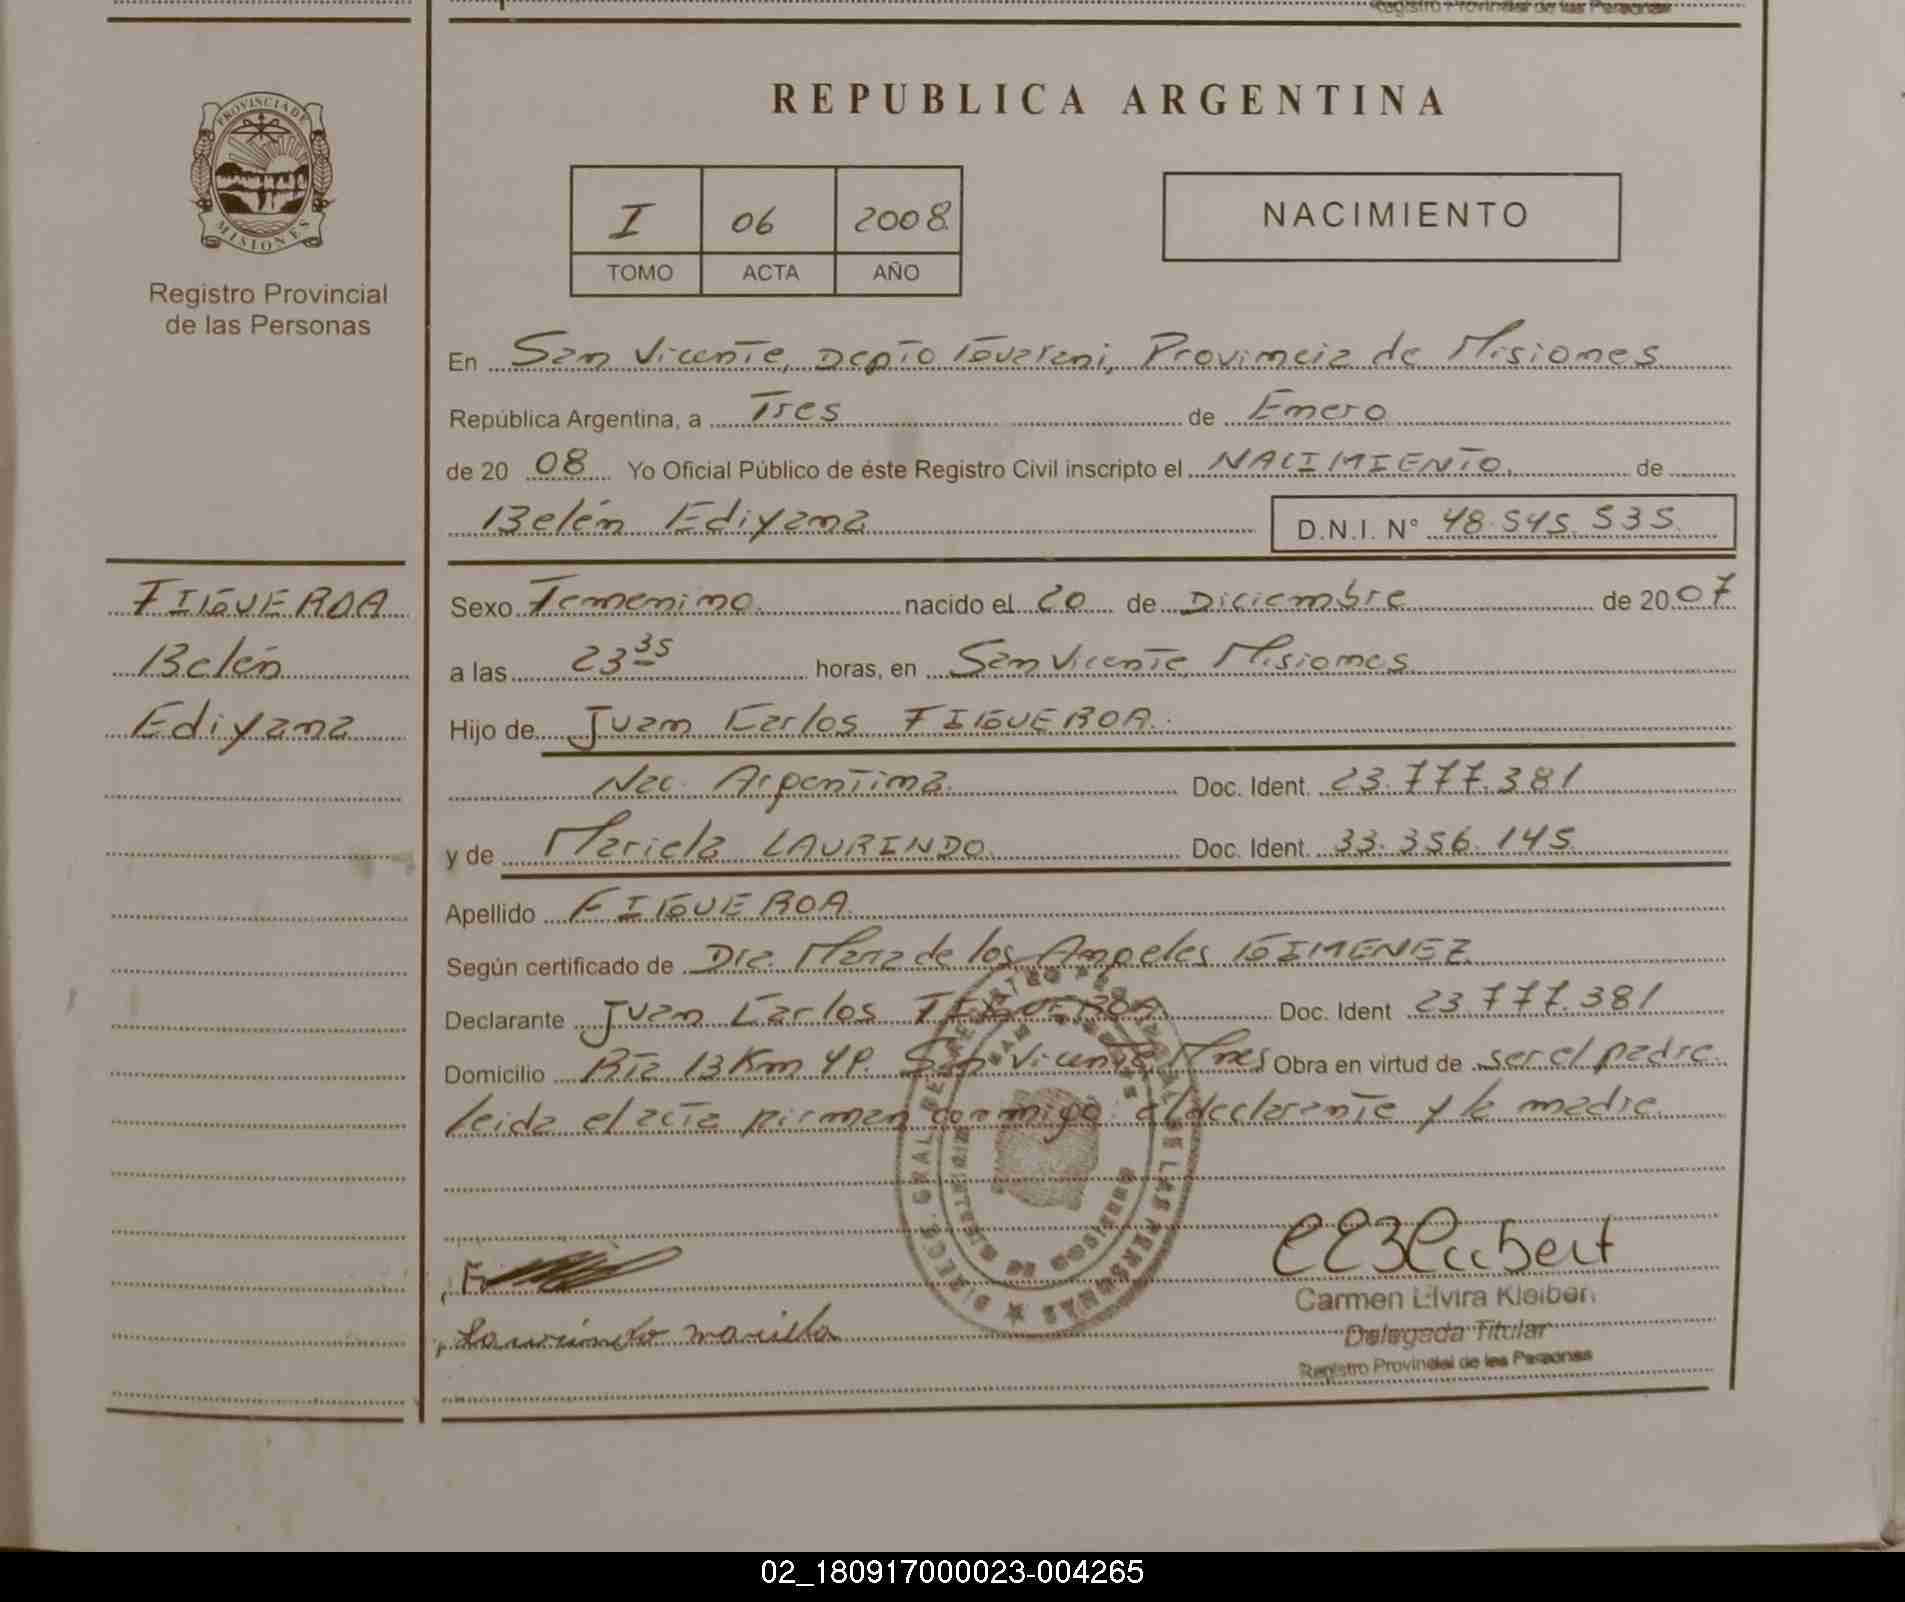 Registro Provincial de las Personas
PROVINCIA DE MISIONES
Registro Provincial
de las Personas
FIGUEROA
Belén
Ediyana
REPUBLICA ARGENTINA
I 06 2008
TOMO ACTA AÑO
NACIMIENTO
En San Vicente, Depto Guarani, Provincia de Misiones
República Argentina, a Tres de Enero
de 20 08 Yo Oficial Público de éste Registro Civil inscripto el NACIMIENTO de
Belén Ediyana D.N.I. N° 48.545.535
Sexo Femenino nacido el 20 de Diciembre de 20 07
a las 23 35 horas, en San Vicente Misiones
Hijo de Juan Carlos FIGUEROA
Nac. Argentina Doc. Ident. 23.777.381
y de Mariela LAURINDO Doc. Ident. 33.356.145
Apellido FIGUEROA
Según certificado de Dra. Maria de los Angeles GIMENEZ
Declarante Juan Carlos FIGUEROA Doc. Ident 23.777.381
Domicilio Rta 13 Km 4P. San Vicente Mnes Obra en virtud de ser el padre
leida el acta firman conmigo el declarante y la madre
Laurindo mariela
Carmen Elvira Kleibert
Delegada Titular
Registro Provincial de las Personas
02_180917000023-004265